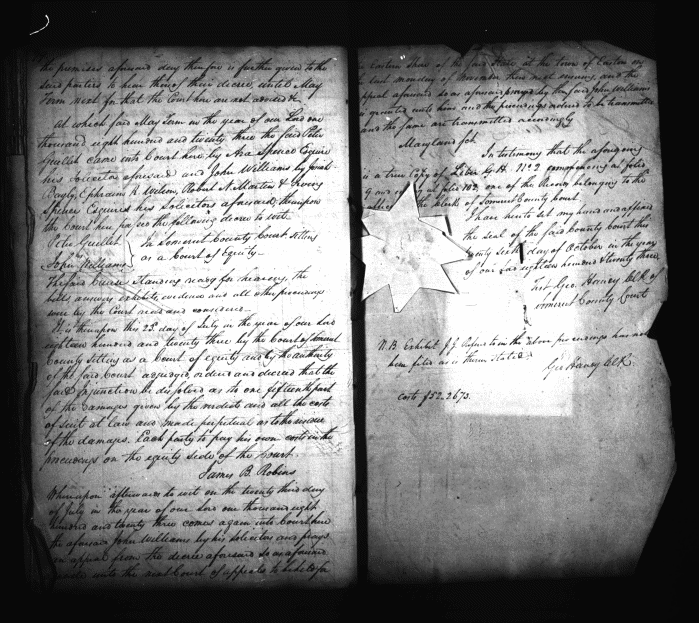 the premises aforesaid day therefore is further given to the
said parties to hear thereof their decree, until May
Term next for that the Court here are not advised &c.
At which said May Term in the year of our Lord one
thousand eight hundred and twenty three the said Peter
Guillet came into Court here by Ara Spence Esquire
his Solicitor aforesaid and John Williams by
Bayly, Ephraim K. Wilson, Robert N. Martin & Irving
Spence Esquires his Solicitors aforesaid, thereupon
the Court here passes the following decree to wit.
Peter Guillet
In Somerset County Court sitting
as a Court of Equity
John Williams
The said cause standing ready for hearing, the
bill, answer, exhibits, evidence and all other proceedings
were by the Court read and considered.
It is thereupon this 23d day of July in the year of our Lord
eighteen hundred and twenty three by the Court of Somerset
County sitting as a Court of equity and by the authority
of the said Court adjudged, ordered and decreed that the
said injunction be dissolved as to one fifteenth part
of the damages given by the verdict and all the costs
of suit at law and made perpetual as to the residue
of the damages. Each party to pay his own costs in the
proceedings on the equity side of the Court.
James B. Robins
Whereupon afterwards to wit on the twenty third day
of July in the year of our Lord one thousand eight
hundred and twenty three comes again into Court here
the aforesaid John Williams by his solicitors and prays
an appeal from the decree aforesaid so as aforesaid
unto the next Court of appeals to be held for
Eastern Shore of the said State, at the Town of Easton on
last monday of November then next ensuing, and the
appeal aforesaid so as aforesaid prayed by the said John Williams
is granted unto him and the proceedings ordered to be transmitted
and the same are transmitted accordingly
Maryland sct.
In testimony that the aforegoing
is a true copy of Liber G.H. No. 2 commencing at folio
9 and at folio 102, one of the Records belonging to the
of the Clerk of Somerset County Court.
I have hereto set my hand and affixed
the seal of the said County Court this
sixth day of October in the year
of our Lord eighteen hundred & twenty three
Test. Geo. Handy Clk of
Somerset County Court
N.B. Exhibit refered to in the above proceedings has not
been filed as is therein stated
Geo Handy Clk
Costs $52.26 73.